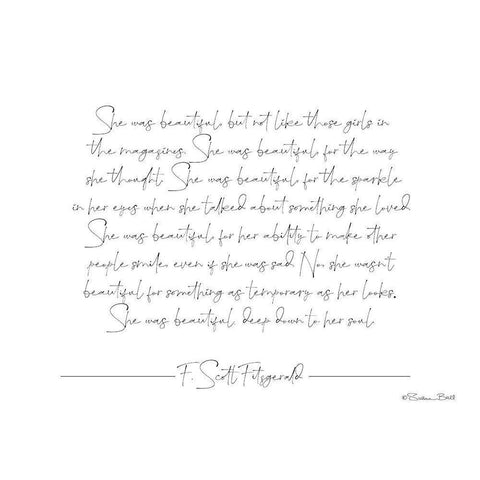 She was beautiful, but not like those girls in
the magazines. She was beautiful for the way
she thought. She was beautiful for the sparkle
in her eyes when she talked about something she loved.
She was beautiful for her ability to make other
people smile, even if she was sad. No, she wasn't
beautiful for something as temporary as her looks.
She was beautiful, deep down to her soul.
F. Scott Fitzgerald
© Susan Ball